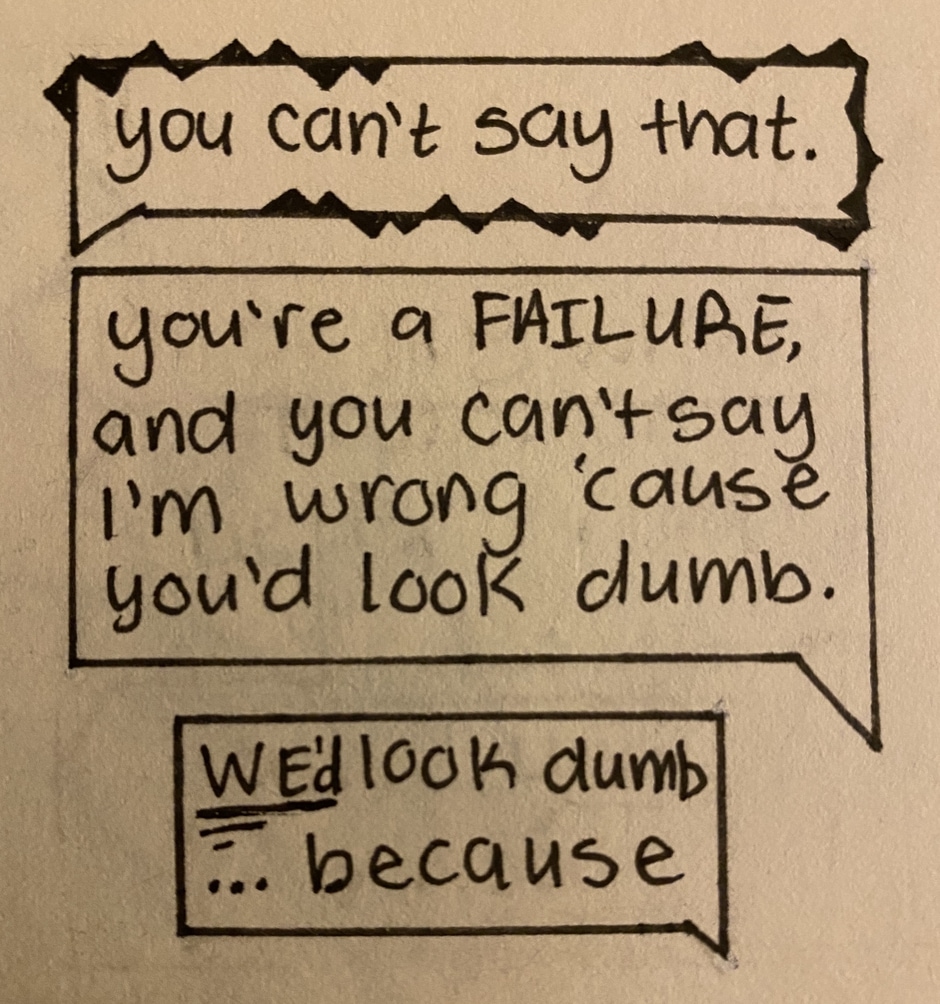 you can't say that.
you're a FAILURE,
and you can't say
I'm wrong 'cause
you'd look dumb.
WE'd look dumb
... because